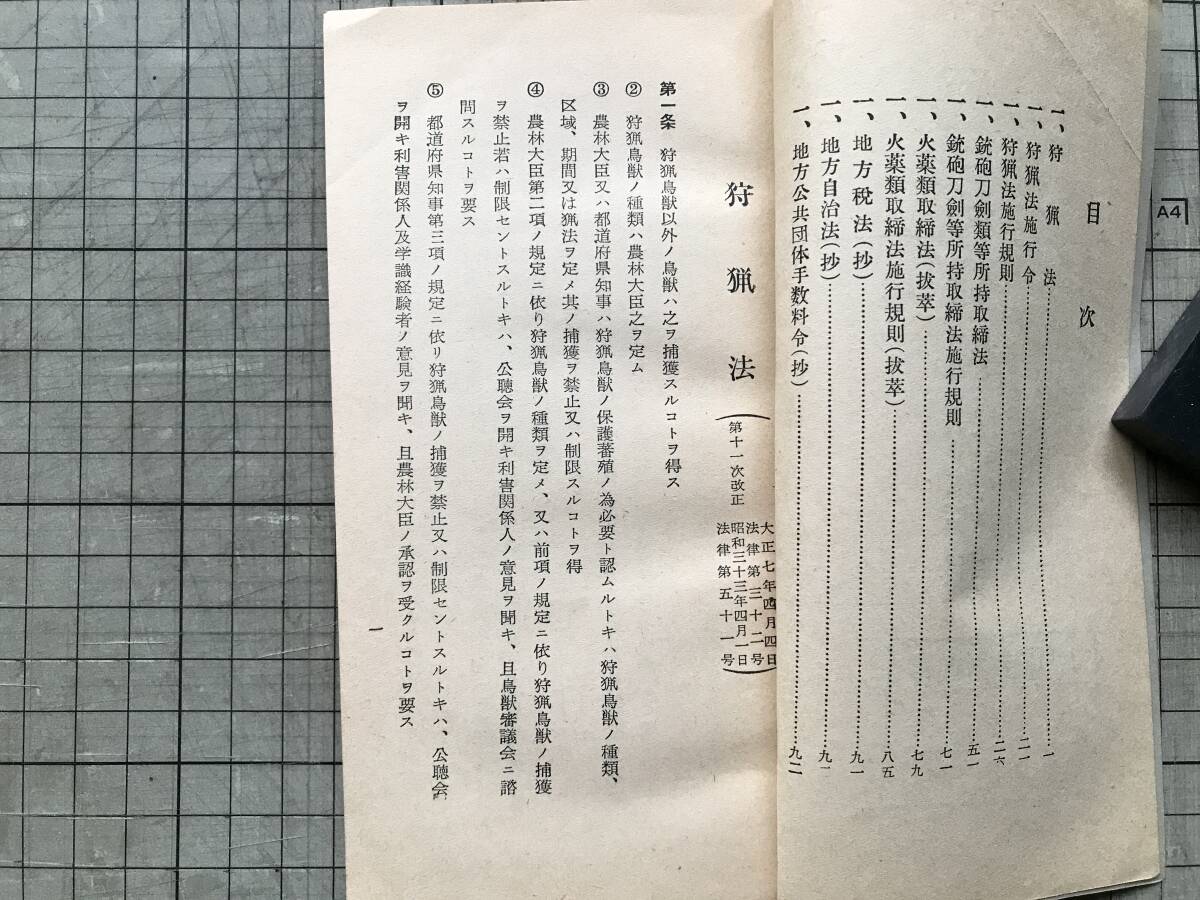 目次
一、狩猟法……一
一、狩猟法施行令……二一
一、狩猟法施行規則……二六
一、銃砲刀劍類等所持取締法……五一
一、銃砲刀劍類等所持取締法施行規則……七一
一、火薬類取締法(抜萃)……七九
一、火薬類取締法施行規則(抜萃)……八五
一、地方税法(抄)……九一
一、地方自治法(抄)……九一
一、地方公共団体手数料令(抄)……九二
狩猟法
大正七年四月四日
法律第三十二号
第十一次改正
昭和三十三年四月一日
法律第五十一号
第一条 狩猟鳥獣以外ノ鳥獣ハ之ヲ捕獲スルコトヲ得ス
② 狩猟鳥獣ノ種類ハ農林大臣之ヲ定ム
③ 農林大臣又ハ都道府県知事ハ狩猟鳥獣ノ保護蕃殖ノ為必要ト認ムルトキハ狩猟鳥獣ノ種類、
区域、期間又は猟法ヲ定メ其ノ捕獲ヲ禁止又ハ制限スルコトヲ得
④ 農林大臣第二項ノ規定ニ依り狩猟鳥獣ノ種類ヲ定メ、又ハ前項ノ規定ニ依り狩猟鳥獣ノ捕獲
ヲ禁止若ハ制限セントスルトキハ、公聴会ヲ開キ利害関係人ノ意見ヲ聞キ、且鳥獣審議会ニ諮
問スルコトヲ要ス
⑤ 都道府県知事第三項ノ規定ニ依リ狩猟鳥獣ノ捕獲ヲ禁止又ハ制限セントスルトキハ、公聴会
ヲ開キ利害関係人及学識経験者ノ意見ヲ聞キ、且農林大臣ノ承認ヲ受クルコトヲ要ス
一
A4